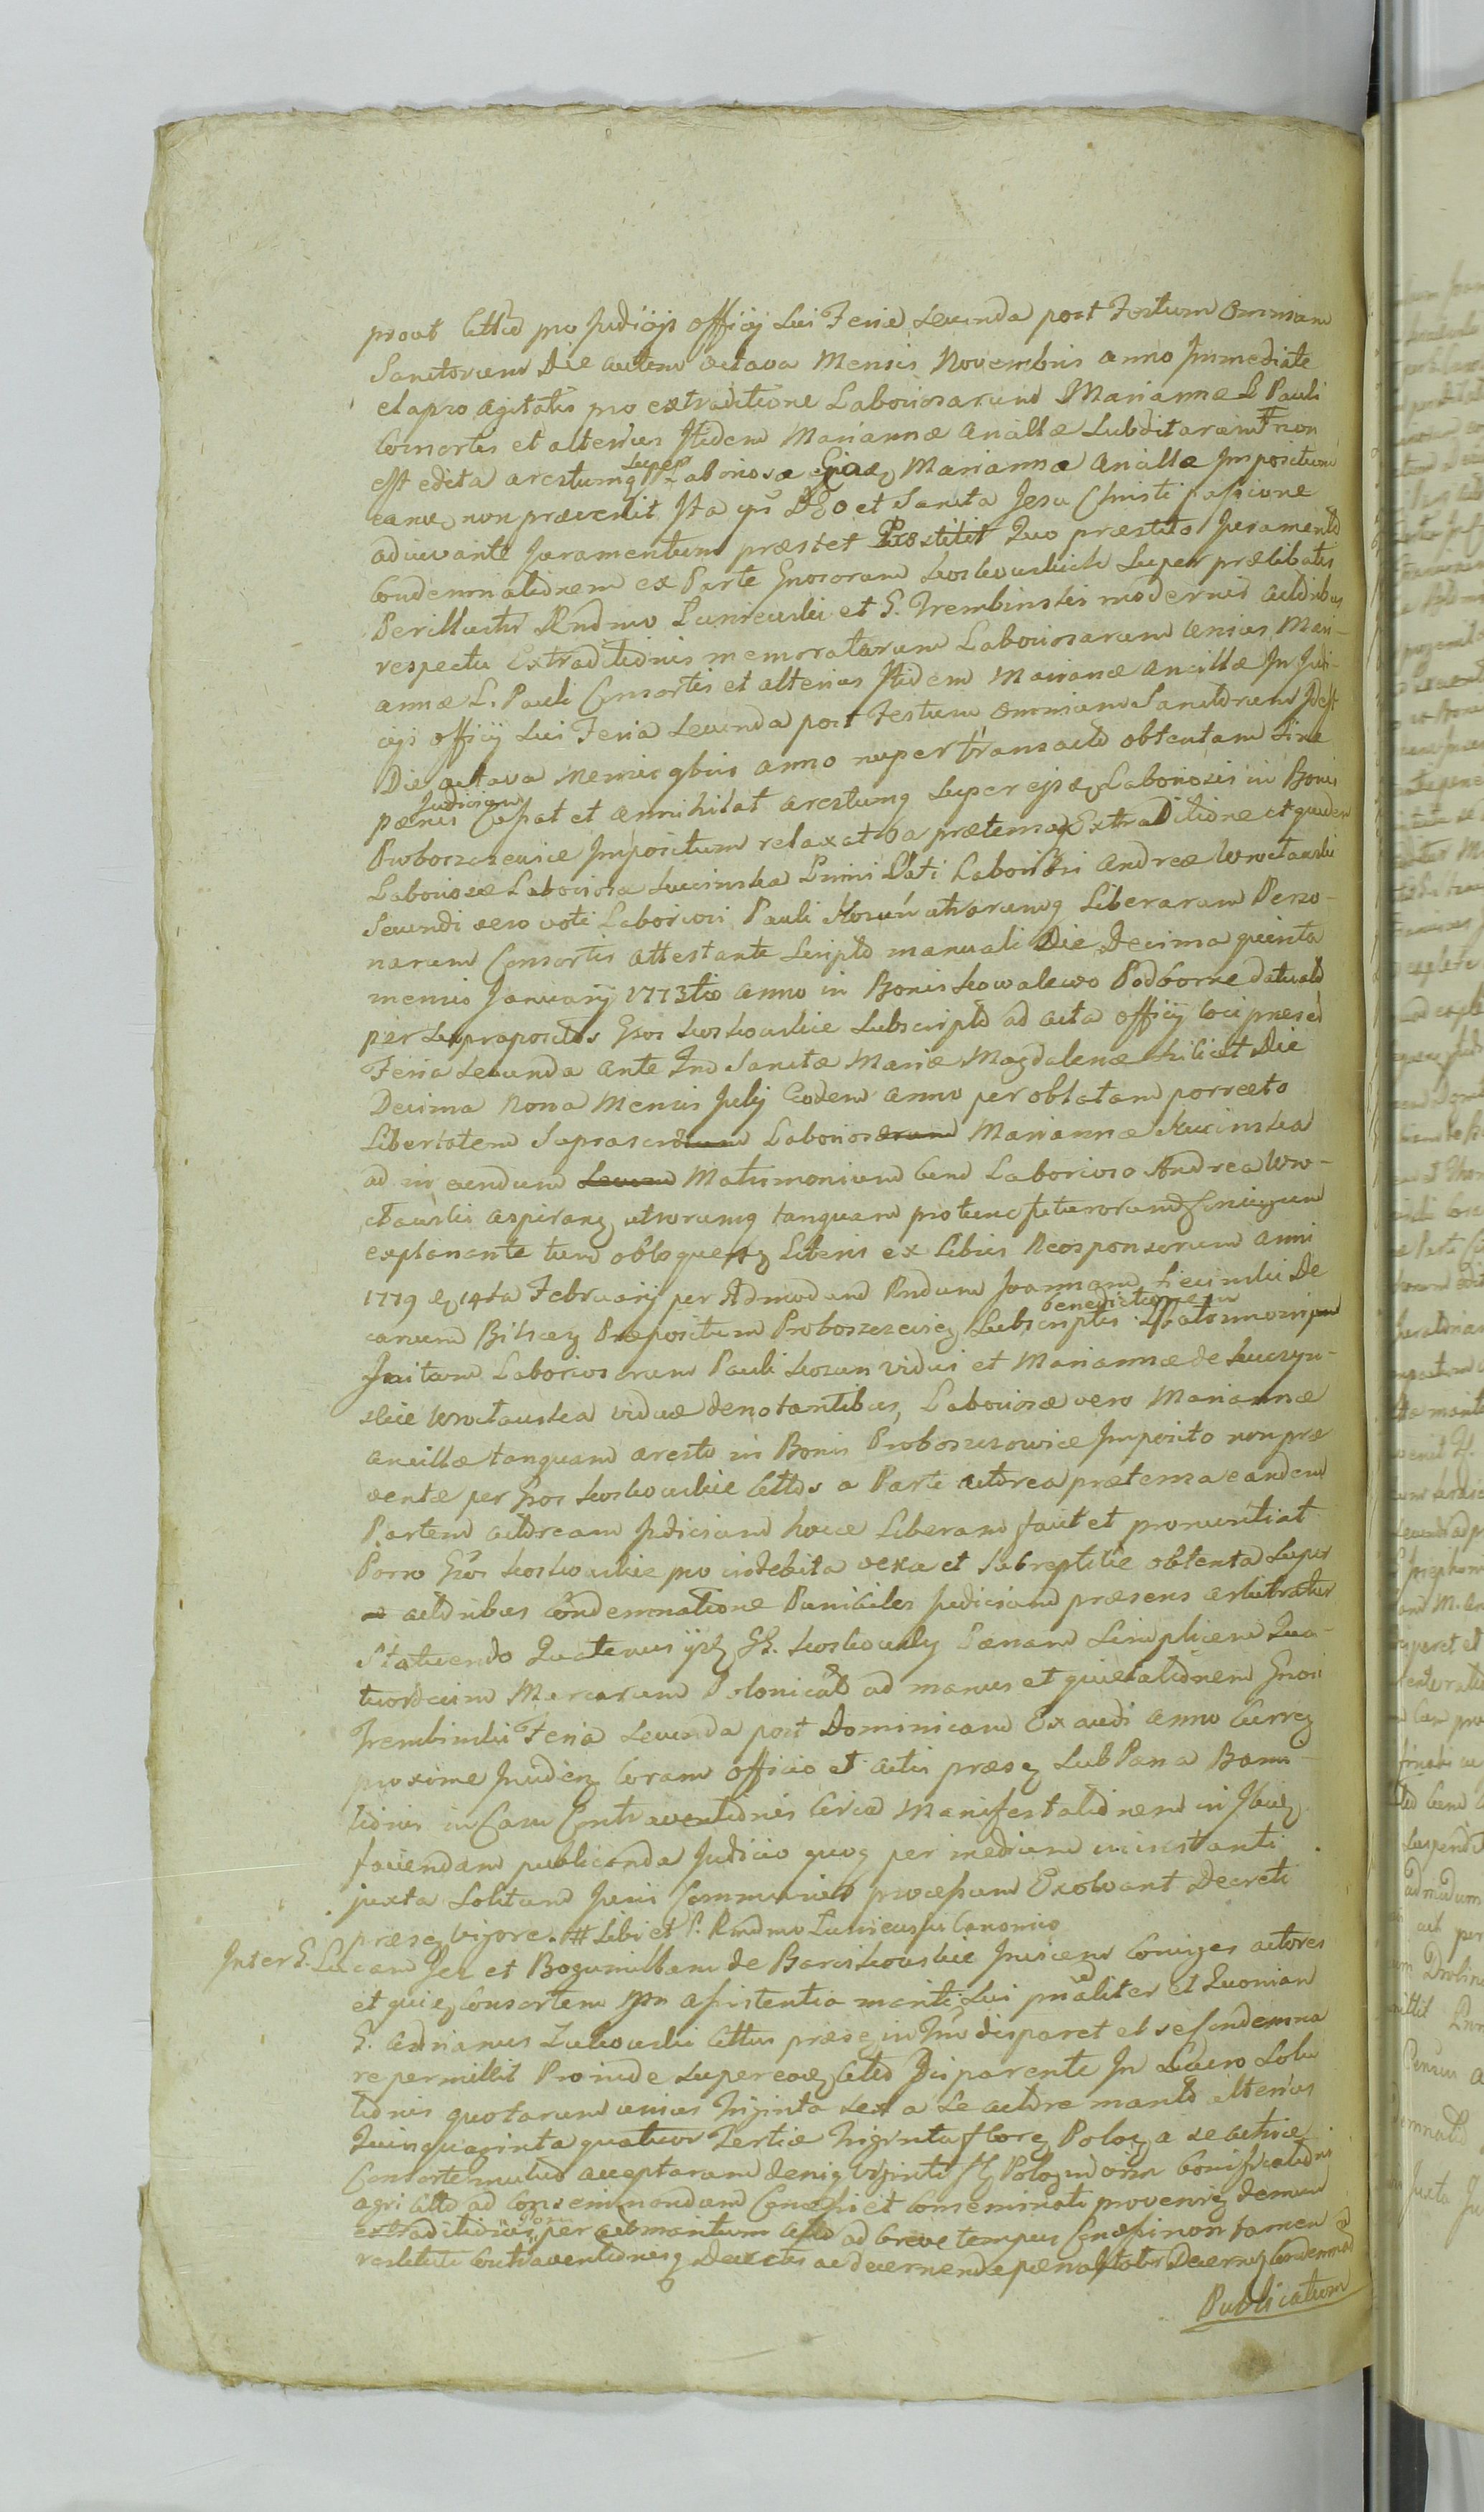 prout Citto pro Judicijs officij sui Feria Secunda post Festum Omnium
Sanctorum Die autem octava Mensis Novembris anno Immediate
elapso agitatis pro extraditione Laboriosarum Mariannæ L. Pauli
Consortis et alterius Itidem Mariannæ Ancillæ Subditarum # non
est edita arestumq super Laboriosæ Mariannæ Ancillæ Impositum
eane non prævenit Ita qs DEo et Sancta Jesu Christi passione
adiuvante Juramentum præstet Præstitit Quo præstito Juramento
Condemnationem ex Parte Gnosorum Koskowskich Super prælibatis
Perillustri Rndmo Luniewski et G. Trembinskis modernis actoribus
respectu Extraditionis memoratarum Laboriosarum unius Mari-
annæ L. Pauli Consortis et alterius Itidem Mariannæ Ancillæ In Judi-
cijs officij sui Feria Secunda post Festum Omnium Sanctorum Idest
Die octava Mensis 9bris anno nuper transacto obtentam Sine
pænis Judicium Cassat et annihilat arestumq super Laboriosis in Bonis
Proboszczewice Impositum relaxat a prætensa ExtraDitione et quidem
Laboriosæ Kucinska Primi Voti Laboriosi Andreæ Wroctawski
Secundi vero voti Laboriosi Pauli Kosuń utrorumq Liberarum Perso-
narum Consortis attestante Scripto manuali Die Decima quinta
mensis Januarij 1773tio anno in Bonis Kowalewo Podborne datuato
per Supra positos Gsos Koskowskie Subscripto ad acta officij loci præsen
Feria Secunda ante Fm Sanctæ Mariæ Magdalenæ scilicet Die
Decima Nona Mensis Julij Eodem anno per oblatam porrecto
Libertatem Suprascri Laboriosæ Mariannæ Kucinska
ad in eundum Matrimonium Cum Laborioso Andrea Wro-
ctawski aspiranz utrorumq tanquam protunc futurorum Conjugum
explanante tum obloquenz Literis ex Libris Responsorum anni
1779 14ta February per Admodum Rndum Joannem De
canum Bilscez Præpositum Proboszczeviez Subscriptis benedictionem Matrimonij
Initam Laboriosorum Pauli Kosun vidui et Mariannæ de Kuczyn-
skie Wroctawska viduæ denotantibus, Laboriosæ vero Mariannæ
Ancillæ tanquam aresto in Bonis Proboszczowice Imposito non præ
ventæ per Gsos Koskowskie Cittos a Parte actorea prætensa eandem
Partem actoream Judicium hocce Liberam facit et pronuntiat
Porro Gsos Koskowskie pro indebita vexa et Subreptitie obtenta Super
actoribus Condemnatione Punibiles Judicium præsens arbitratur
Statuendo Quatenus ijdz GG. Koskowscy Pænam Simplicem Qua-
tuordecim Marcarum Polonical ad manus et quietationem Gnosi
Trembinski Feria Secunda post Dominicam Exaudi anno Currez
proxime Inciden Coram officio et actis præsez Sub Pæna Banni-
tionis in Casu Contraventionis Circa Manifestationem in
faciendam publicanda Judicio quoq per medium ministerii
juxta Solitum Juris Communis processum Exolvant Decreti
præsez vigore. # Sibi et P. Rndmo Luniewski Canonico
Inter G. Lucam Jez et Bogumillam de Barcikowskie Invicem Coniuges actores
et quiez Consortem assistentia mariti Sui pnaliter et Quoniam
G. Adrianus Zukowski Cittus præsez in disparet et se Condemna
re permittit Proinde Super eo Citto Disparente In Lucro Solu
tionis quotarum unius Triginta sex a Se actore manto alterius
Quinquaginta quatuor Tertiæ Triginta florez Poloz a se actrice
Consorte mutuo acceptarum deniq Viginti Poloz Bonificationis
agri Citto ad Conseminandum Concessi et Conseminati provenien demum
extraditionis per Citto ad breve tempus Concessi non tamen
restituti Contraventionisq Decretis ac decernendæ pænalitatis Decernz Condemnat
Publicatum